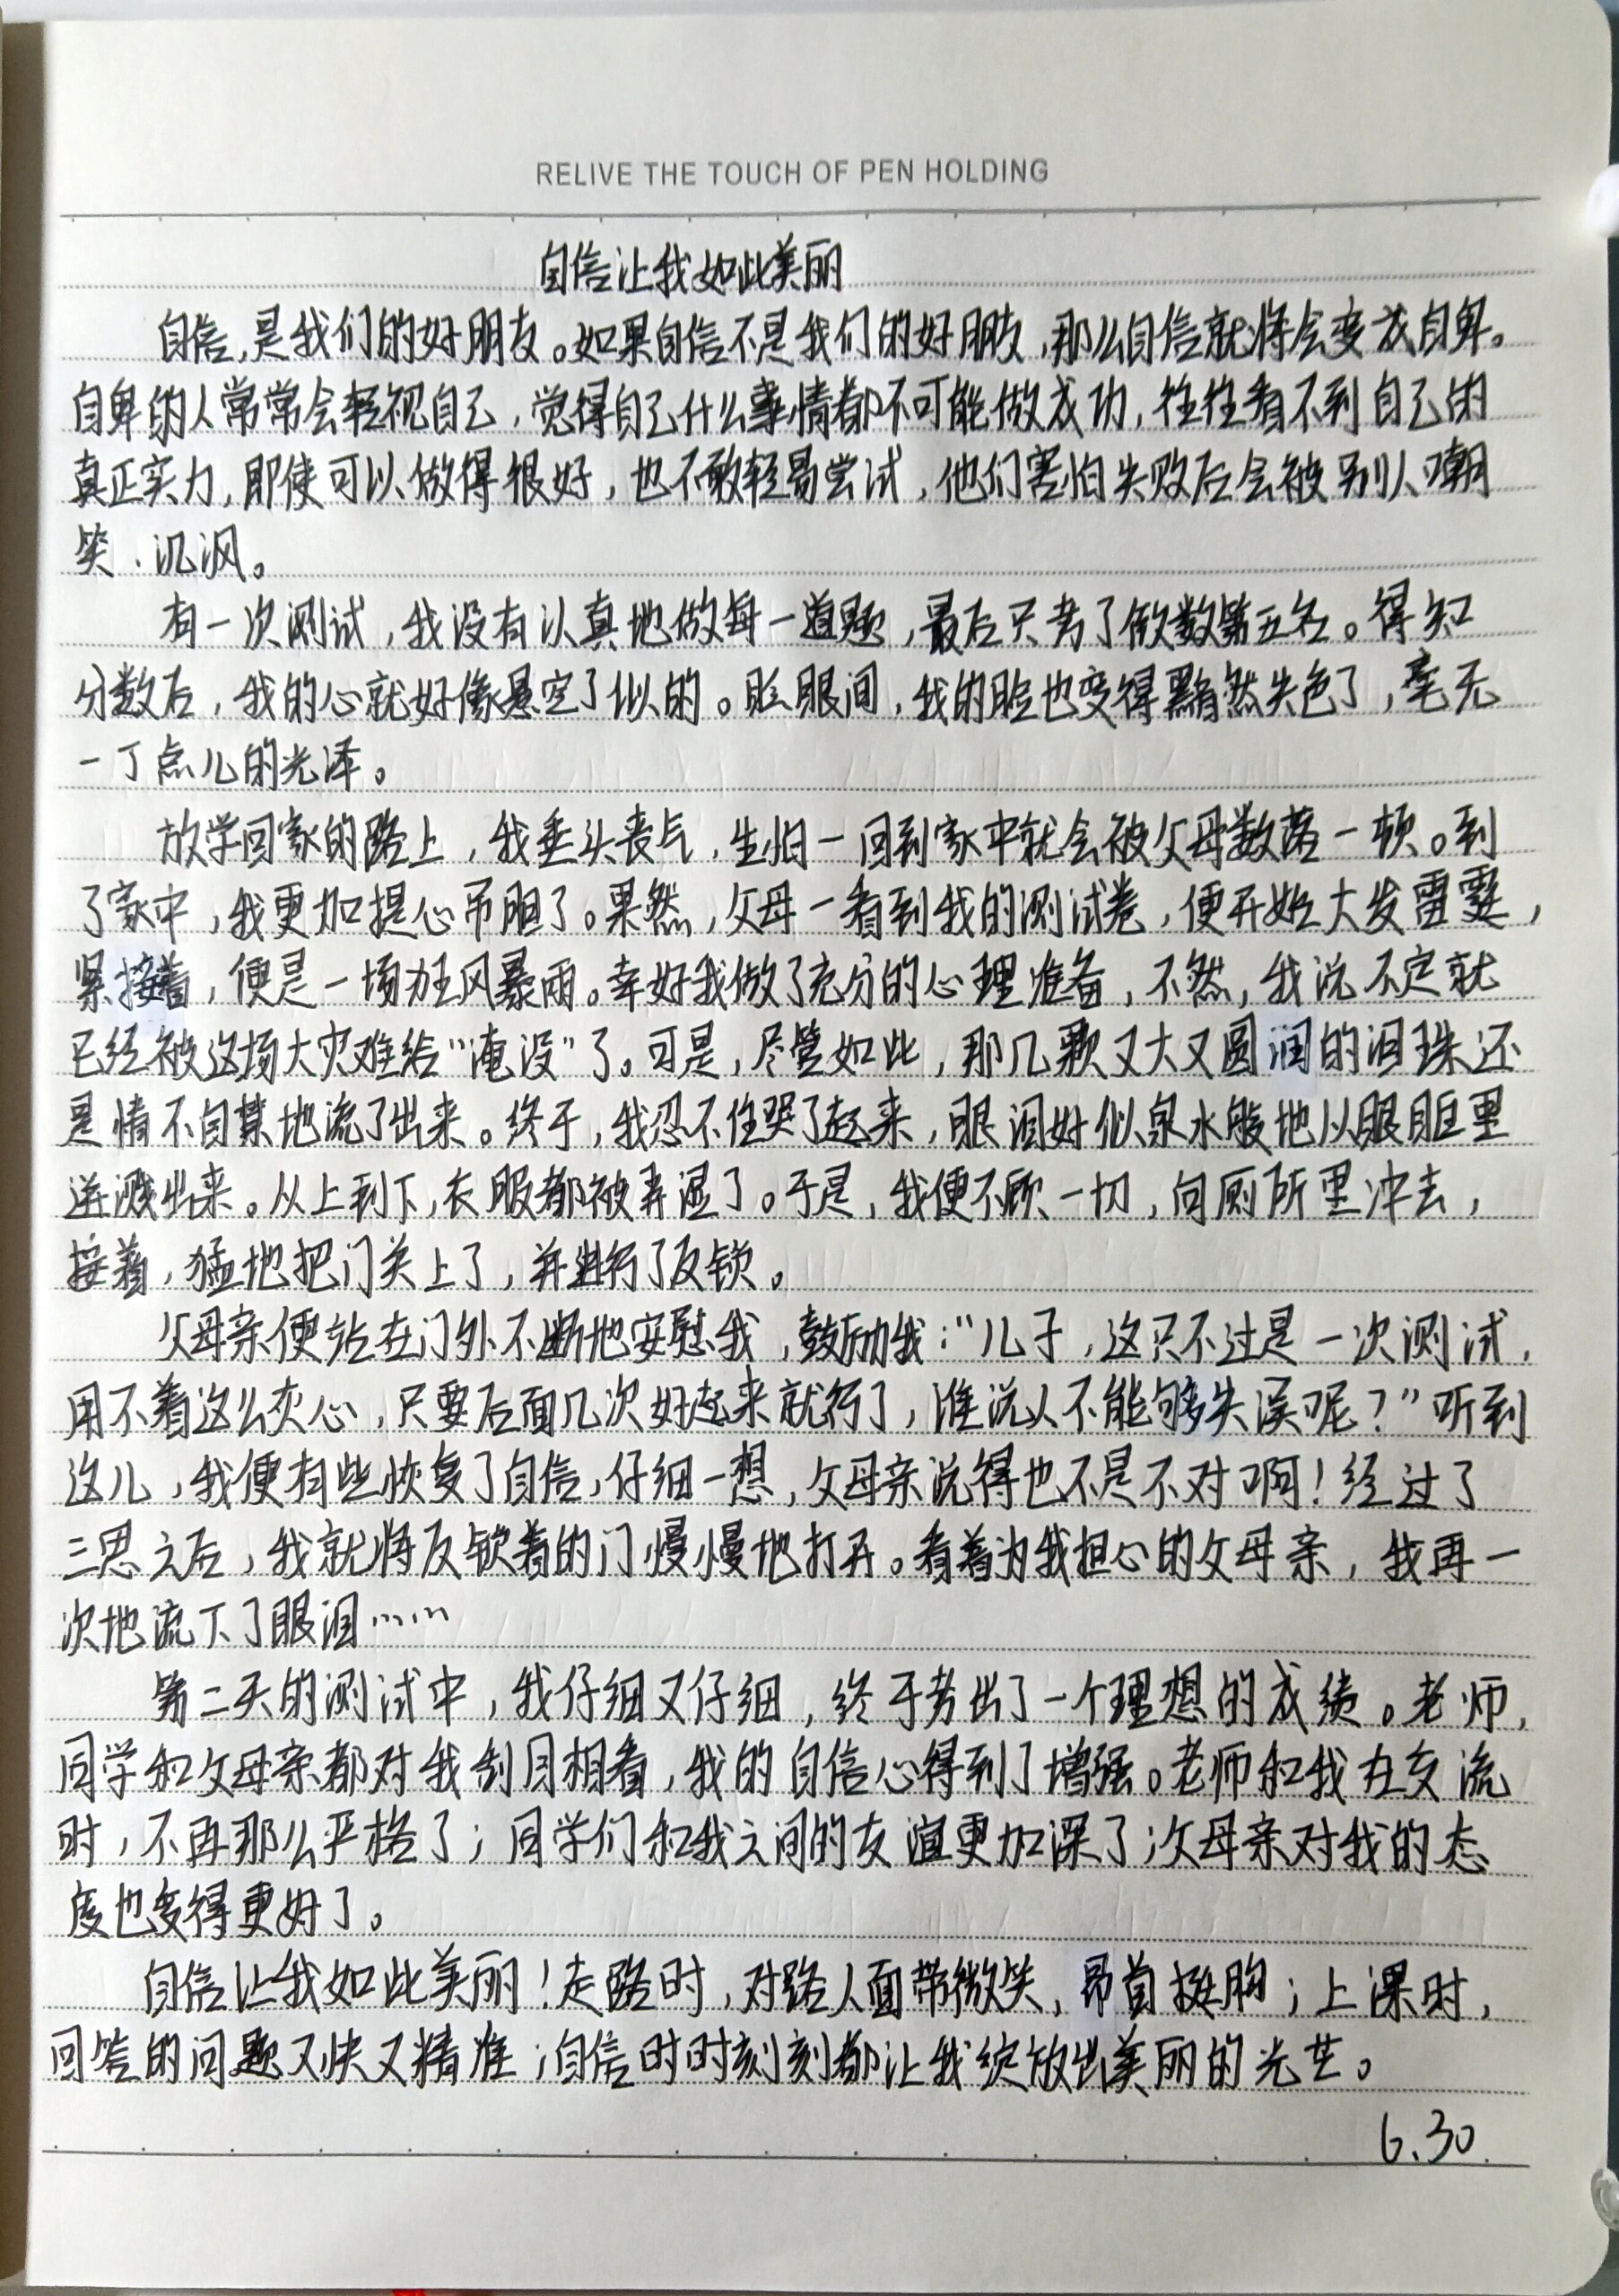 RELIVE THE TOUCH OF PEN HOLDING
自信让我如此美丽
自信,是我们的好朋友。如果自信不是我们的好朋友,那么自信就将会变成自卑。
自卑的人常常会轻视自己,觉得自己什么事情都不可能做成功,往往看不到自己的
真正实力,即使可以做得很好,也不敢轻易尝试,他们害怕失败后会被别人嘲
笑、讥讽。
有一次测试,我没有认真地做每一道题,最后只考了倒数第五名。得知
分数后,我的心就好像悬空了似的。眨眼间,我的脸也变得黯然失色了,毫无
一丁点儿的光泽。
放学回家的路上,我垂头丧气,生怕一回到家中就会被父母数落一顿。到
了家中,我更加提心吊胆了。果然,父母一看到我的测试卷,便开始大发雷霆,
紧接着,便是一场狂风暴雨。幸好我做了充分的心理准备,不然,我说不定就
已经被这场大灾难给“淹没”了。可是,尽管如此,那几颗又大又圆润的泪珠还
是情不自禁地流了出来。终于,我忍不住哭了起来,眼泪好似泉水般地从眼眶里
迸溅出来。从上到下,衣服都被弄湿了。于是,我便不顾一切,向厕所里冲去,
接着,猛地把门关上了,并进行了反锁。
父母亲便站在门外不断地安慰我,鼓励我:“儿子,这只不过是一次测试,
用不着这么灰心,只要后面几次好起来就行了,谁说人不能够失误呢?”听到
这儿,我便有些恢复了自信,仔细一想,父母亲说得也不是不对啊!经过了
三思之后,我就将反锁着的门慢慢地打开。看着为我担心的父母亲,我再一
次地流下了眼泪……
第二天的测试中,我仔细又仔细,终于考出了一个理想的成绩。老师,
同学和父母亲都对我刮目相看,我的自信心得到了增强。老师和我在交流
时,不再那么严格了;同学们和我之间的友谊更加深了;父母亲对我的态
度也变得更好了。
自信让我如此美丽!走路时,对路人面带微笑,昂首挺胸;上课时,
回答的问题又快又精准;自信时时刻刻都让我绽放出美丽的光芒。
6.30.